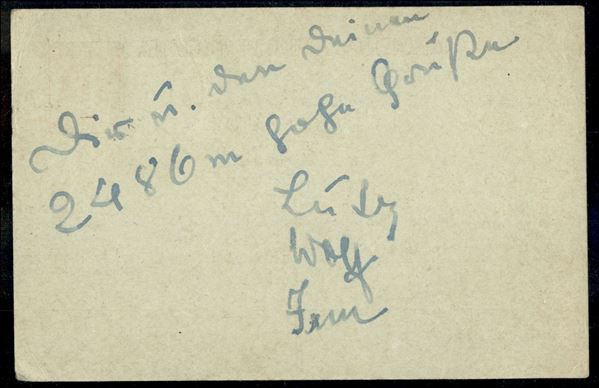 Dir u. den Deinen
2486m hohe Grüße
Wolf